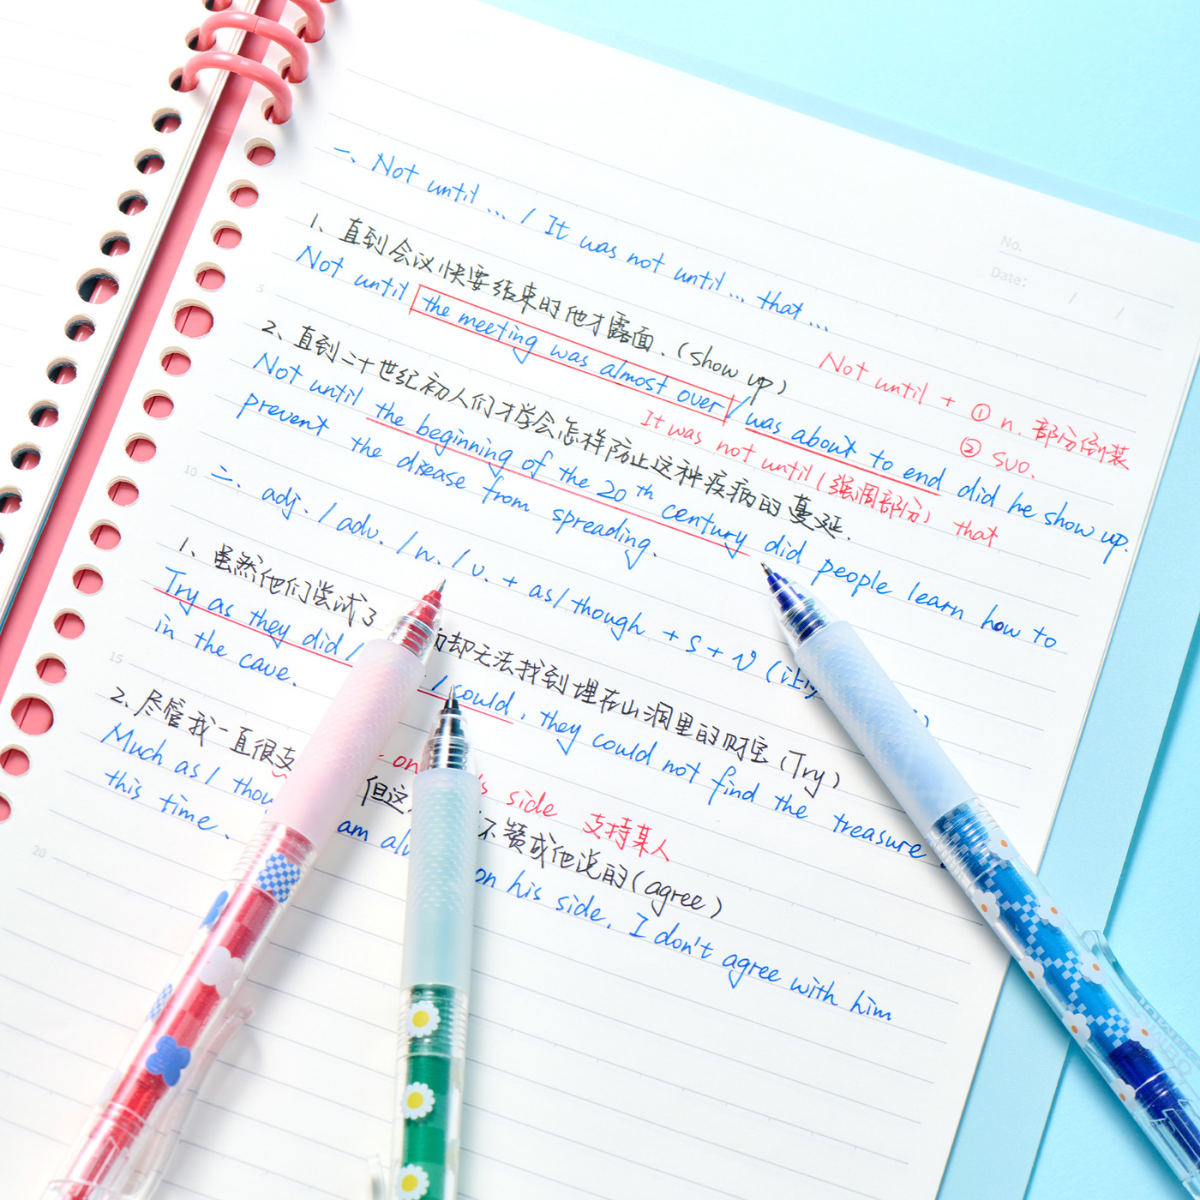 一、Not until ... / It was not until ... that ...
No.
Date: / /
1、直到会议快要结束时他才露面.(show up)
Not until the meeting was almost over / was about to end did he show up.
Not until + ① n. 部分倒装
② suo.
2、直到二十世纪初人们才学会怎样防止这种疫病的蔓延.
It was not until (强调部分) that
Not until the beginning of the 20th century did people learn how to
prevent the disease from spreading.
二、adj. / adv. / n. / v. + as / though + S + V (让
1、虽然他们尝试了 却无法找到埋在山洞里的财宝 (Try)
Try as they did / / could, they could not find the treasure
in the cave.
2、尽管我一直很支 但这 不赞成他说的 (agree)
on 's side 支持某人
Much as / thou am al on his side, I don't agree with him
this time.
5
10
15
20